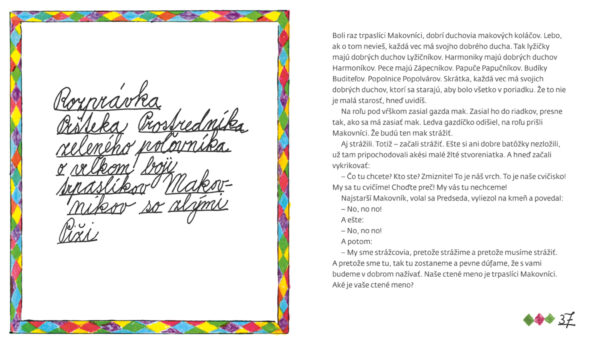 Rozprávka
Pišteka Prostredníka
zeleného poľovníka
o veľkom boji
trpaslíkov Makov-
níkov so zlými
Piži
Boli raz trpaslíci Makovníci, dobrí duchovia makových koláčov. Lebo,
ak o tom nevieš, každá vec má svojho dobrého ducha. Tak lyžičky
majú dobrých duchov Lyžičníkov. Harmoniky majú dobrých duchov
Harmoníkov. Pece majú Zápecníkov. Papuče Papučníkov. Budíky
Buditeľov. Popolnice Popolvárov. Skrátka, každá vec má svojich
dobrých duchov, ktorí sa starajú, aby bolo všetko v poriadku. Že to nie
je malá starosť, hneď uvidíš.
Na roľu pod vŕškom zasial gazda mak. Zasial ho do riadkov, presne
tak, ako sa má zasiať mak. Ledva gazdíčko odišiel, na roľu prišli
Makovníci. Že budú ten mak strážiť.
Aj strážili. Totiž – začali strážiť. Ešte si ani dobre batôžky nezložili,
už tam pripochodovali akési malé žlté stvoreniatka. A hneď začali
vykrikovať:
– Čo tu chcete? Kto ste? Zmiznite! To je náš vrch. To je naše cvičisko!
My sa tu cvičíme! Choďte preč! My vás tu nechceme!
Najstarší Makovník, volal sa Predseda, vyliezol na kmeň a povedal:
– No, no, no!
A ešte:
– No, no, no!
A potom:
– My sme strážcovia, pretože strážime a pretože musíme strážiť.
A pretože sme tu, tak tu zostaneme a pevne dúfame, že s vami
budeme v dobrom nažívať. Naše ctené meno je trpaslíci Makovníci.
Aké je vaše ctené meno?
37